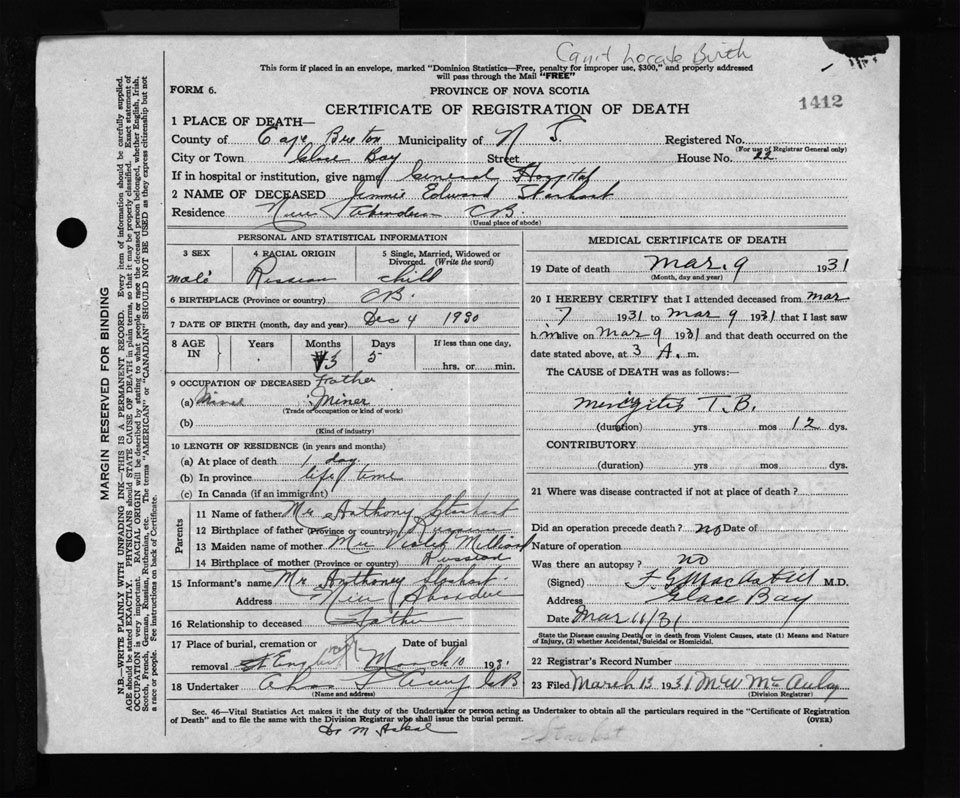 Can't Locate Birth
This form if placed in an envelope, marked "Dominion Statistics—Free, penalty for improper use, $300," and properly addressed
will pass through the Mail "FREE"
FORM 6.
PROVINCE OF NOVA SCOTIA
CERTIFICATE OF REGISTRATION OF DEATH
1412
1 PLACE OF DEATH—
County of Cape Breton Municipality of N S. Registered No.
(For use of Registrar General only)
City or Town Glace Bay Street House No. 22
If in hospital or institution, give name General Hospital
2 NAME OF DECEASED Jimmie Edward
Residence New Aberdeen CB.
(Usual place of abode)
PERSONAL AND STATISTICAL INFORMATION
3 SEX 4 RACIAL ORIGIN 5 Single, Married, Widowed or Divorced. (Write the word)
male Russian child
6 BIRTHPLACE (Province or country) CB.
7 DATE OF BIRTH (month, day and year) Dec 4 1930
8 AGE IN Years Months Days If less than one day,
3 5 hrs. or min.
9 OCCUPATION OF DECEASED Father
(a) Miner
(Trade or occupation or kind of work)
(b)
(Kind of industry)
10 LENGTH OF RESIDENCE (in years and months)
(a) At place of death 1 day
(b) In province life time
(c) In Canada (if an immigrant)
Parents
11 Name of father Mr Anthony
12 Birthplace of father (Province or country) Russian
13 Maiden name of mother Violet
14 Birthplace of mother (Province or country) Russian
15 Informant's name Mr Anthoney
Address New
16 Relationship to deceased Father
17 Place of burial, cremation or removal Date of burial
March 10 193
18 Undertaker
(Name and address)
MEDICAL CERTIFICATE OF DEATH
19 Date of death Mar. 9 1931
(Month, day and year)
20 I HEREBY CERTIFY that I attended deceased from Mar
7 1931 to Mar 9 1931 that I last saw
him alive on Mar 9 1931 and that death occurred on
date stated above, at 3 A. m.
The CAUSE of DEATH was as follows:—
Meningitis T.B.
(duration) yrs mos 12 dys.
CONTRIBUTORY
(duration) yrs. mos. dys.
21 Where was disease contracted if not at place of death?
Did an operation precede death? no Date of
Nature of operation
Was there an autopsy? no
(Signed) M.D.
Address Glace Bay
Date Mar 11/31
State the Disease causing Death, or in death from Violent Causes, state (1) Means and Nature
of Injury, (2) whether Accidental, Suicidal or Homicidal.
22 Registrar's Record Number
23 Filed March 13 1931 M W McAulay
(Division Registrar)
Sec. 46—Vital Statistics Act makes it the duty of the Undertaker or person acting as Undertaker to obtain all the particulars required in the "Certificate of Registration
of Death" and to file the same with the Division Registrar who shall issue the burial permit. (OVER)
MARGIN RESERVED FOR BINDING
N.B.—WRITE PLAINLY WITH UNFADING INK—THIS IS A PERMANENT RECORD. Every item of information should be carefully supplied.
AGE should be stated EXACTLY. PHYSICIANS should STATE CAUSE OF DEATH in plain terms, so that it may be properly classified. Exact statement of
OCCUPATION is very important. RACIAL ORIGIN will be described by stating to what people or race the deceased person belonged, whether English, Irish,
Scotch, French, German, Russian, Ruthenian, etc. The terms "AMERICAN" or "CANADIAN" SHOULD NOT BE USED as they express citizenship but not
a race or people. See instructions on back of Certificate.